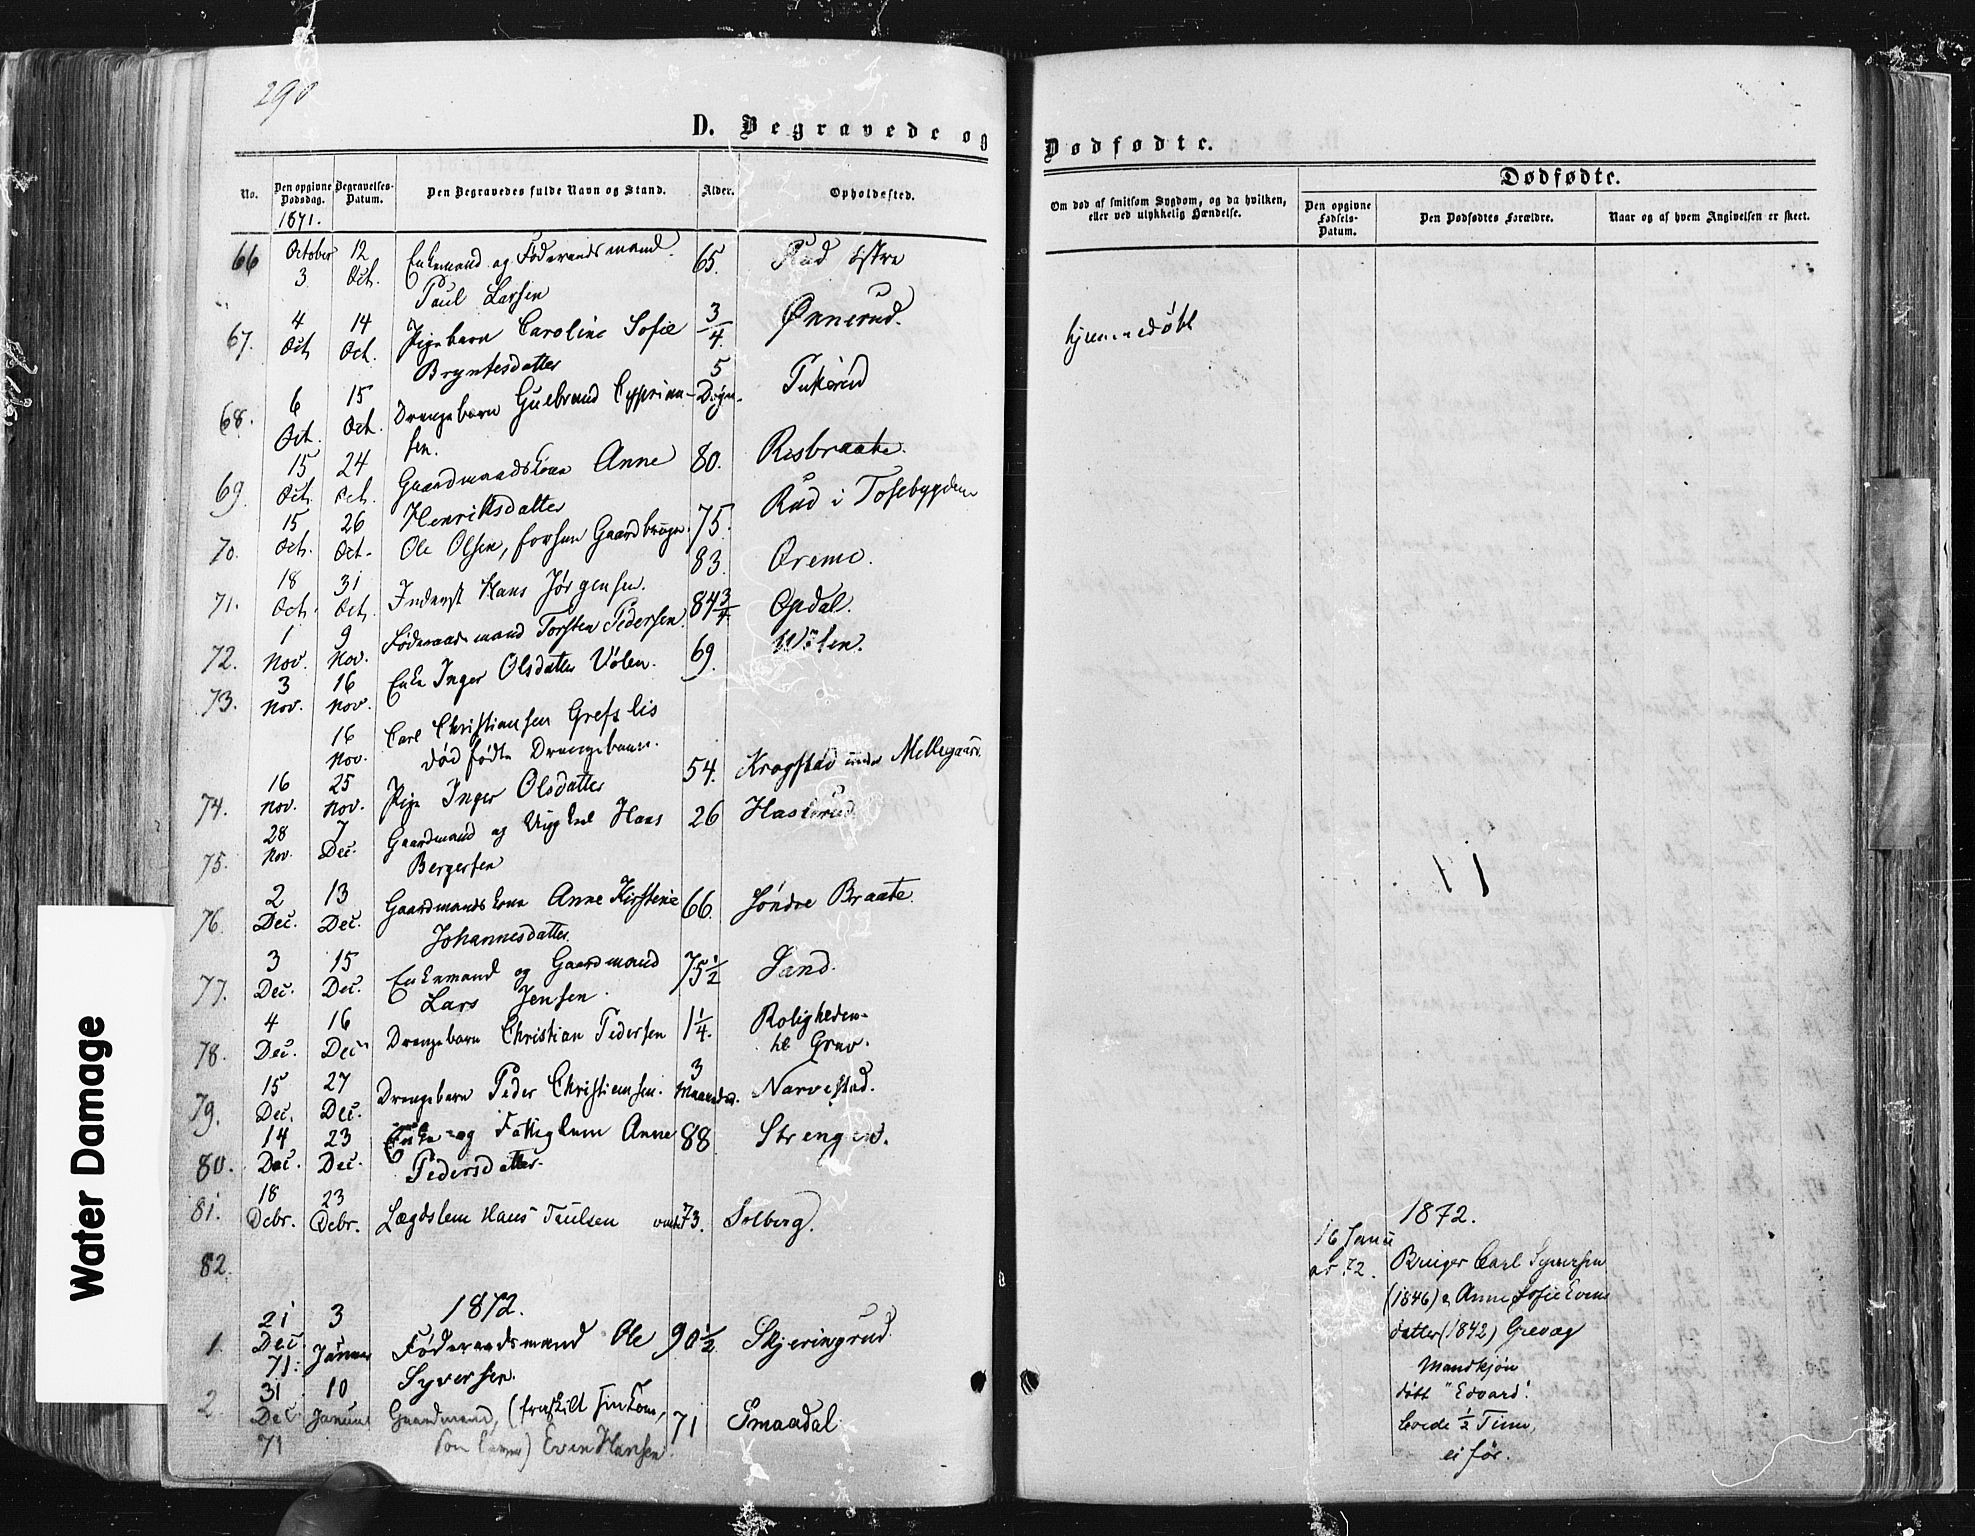 290
D. Begravede og
Dødfødte.
No.
Den opgivne Dødsdag.
Begravelses-Datum.
Den Begravedes fulde Navn og Stand.
Alder.
Opholdssted.
Om død af smitsom Sygdom, og da hvilken, eller ved ulykkelig Hændelse.
Dødfødte.
Den opgivne Fødsels-Datum.
Den Dødfødtes Forældre.
Naar og af hvem Angivelsen er skeet.
1871.
66 October 3 12 Oct. Enkemand og Føderaadsmand 65. Rud østre
Paul Larsen
67. 4 Oct 14 Oct. Pigebarn Caroline Sofie 3/4 Ønnerud. hjemmedøbt
Bryntesdatter
68. 6 Oct. 15 Oct. Drengebarn Gulbrand Cyprian- 5 Døgn.
sen.
69 15 Oct. 24 Oct. Gaardmandskone Anne 80. Risbraate.
Henriksdatter
70. 15 Oct. 26 Oct. Ole Olsen, forhen Gaardbruger 75. Rud i Tosebygden
71. 18 Oct. 31 Oct. Inderst Hans Jørgensen. 83. Oremo.
72. 1 Nov. 9 Nov. Føderaadsmand Torsten Pedersen 84 3/4 Opdal.
73. 3 Nov. 16 Nov. Enke Inger Olsdatter Vølen. 69. Wølen.
16 Nov. Carl Christiansen Grefslis
dødfødte Drengebarn.
74. 16 Nov. 25 Nov. Pige Inger Olsdatter 54. Krogstad under Mellegaard
75. 28 Nov. 7 Dec. Gaardmand og Ungkarl Hans 26
Bergersen
76. 2 Dec. 13 Dec. Gaardmandskone Anne Kirstine 66. Søndre Braate.
Johannesdatter
77. 3 Dec. 15 Dec. Enkemand og Gaardmand 75 1/2 Sand.
Lars Jensen.
78. 4 Dec. 16 Dec. Drengebarn Christian Pedersen 1 1/4. Roligheden
til Grav.
79. 15 Dec. 27 Dec. Drengebarn Peder Christiansen. 3 Maaneder. Narvestad.
80. 14 Dec. 23 Dec. Enke og Fattiglem Anne 88 Strengen.
Pedersdatter
81. 18 Debr. 23 Debr. Lægdslem Hans Paulsen 73. Solberg.
82.
1872.
1. 21 Dec 71. 3 Januar Føderaadsmand Ole 90 1/2 Skjeringrud
Syversen.
2. 31 Dec. 71 10 Januar Gaardmand, (fraskilt sin Kone, 71 Smaadal
) Even Hansen.
1872.
16 Janu
ar 72. Bruger Carl Syversen
(1846) & Anne Sofie Evens
datter (1842) Grevog
Mandkjøn
døbt "Edvard".
levede 1/2 Time,
ei før.
Water Damage